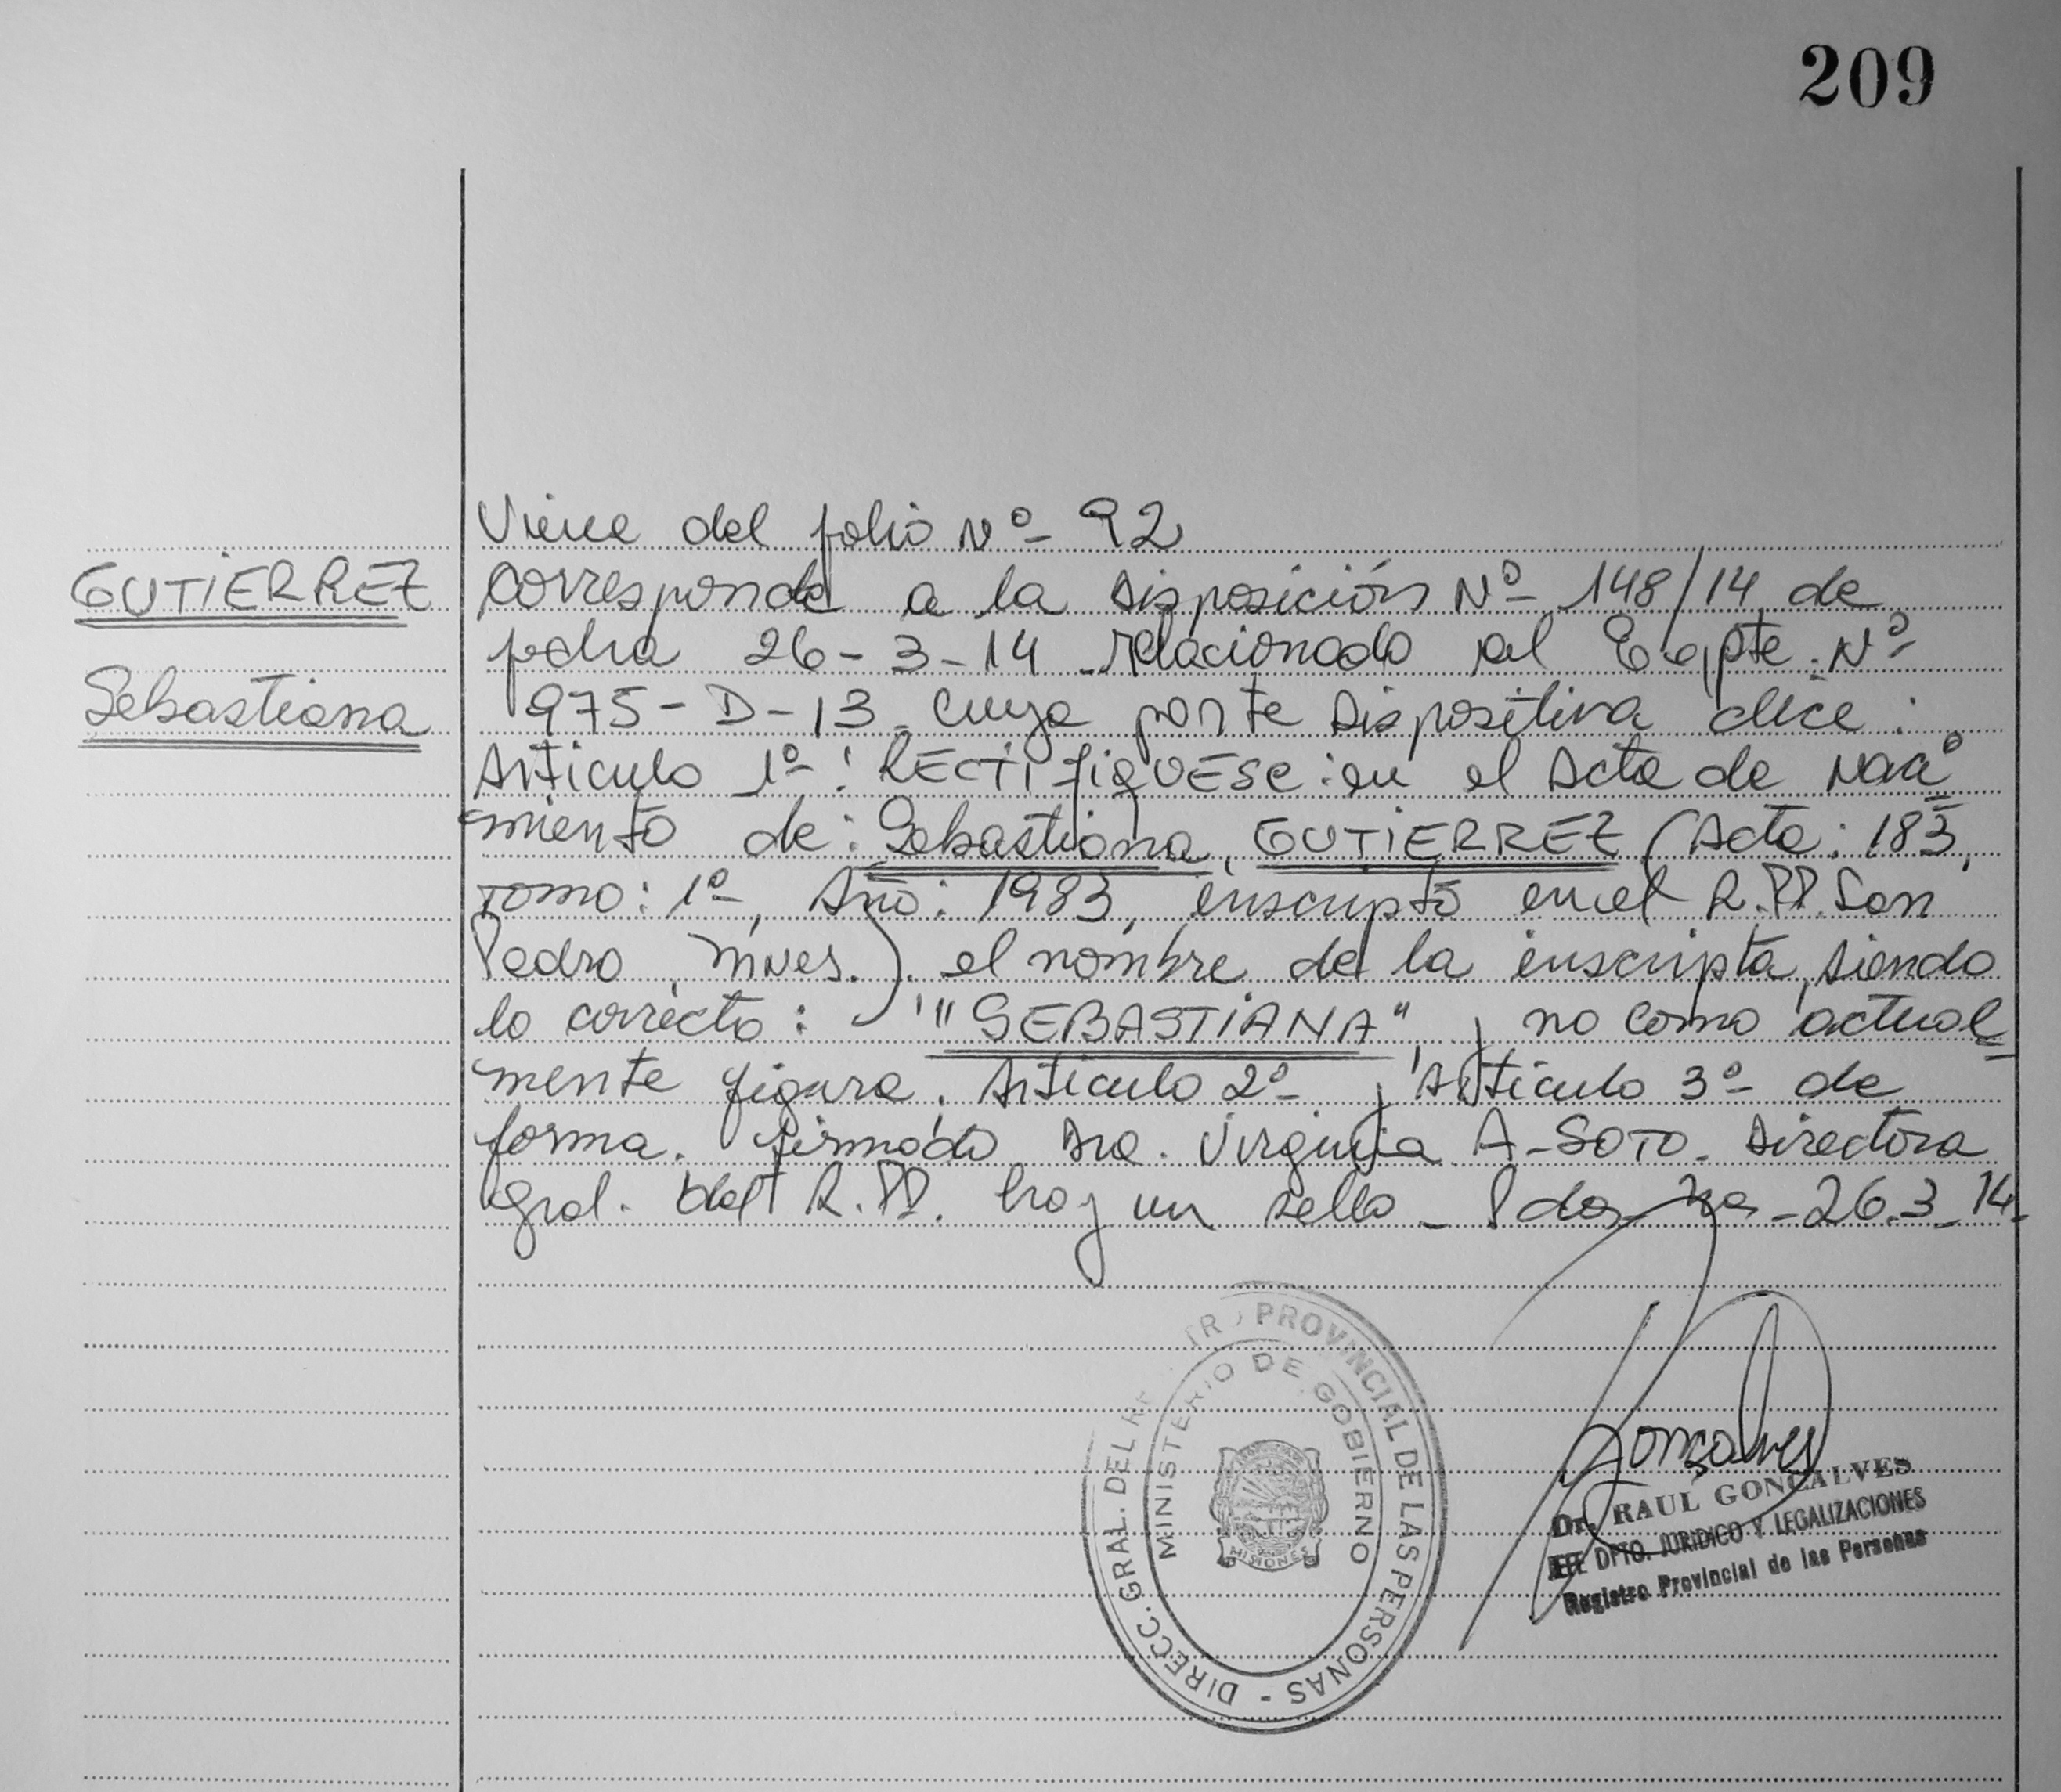 209
Viene del folio Nº 92
GUTIERREZ
Corresponde a la Disposición Nº 148/14 de
fecha 26-3-14 relacionado al Expte. Nº
Sebastiana
975-D-13 cuya parte Dispositiva dice:
Articulo 1º: RECTIFIQUESE: en el Acta de Naci
miento de: Sebastiana, GUTIERREZ (Acta: 183,
Tomo: 1º, Año: 1983, inscripta en el R.PP. San
Pedro, Mnes.). el nombre de la inscripta, siendo
lo correcto: "SEBASTIANA" y no como actual
mente figura. Articulo 2º y Articulo 3º de
forma. firmado Dra. Virginia A-SOTO. Directora
Gral. del R.PP. hay un sello - Pdas. Mnes - 26.3-14-
DIRECC. GRAL. DEL RE TR PROVINCIAL DE LAS PERSONAS -
MINISTERIO DE GOBIERNO
MISIONES
Goncalves
Dr. RAUL GONCALVES
JEFE DPTO. JURIDICO Y LEGALIZACIONES
Registro Provincial de las Personas